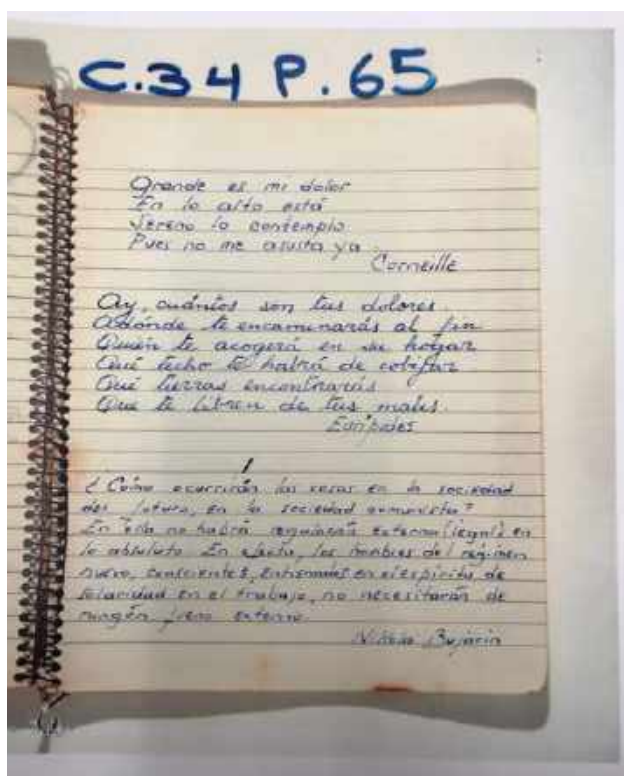 C.34 P.65
Grande es mi dolor
En lo alto está
Sereno lo contemplo
Pues no me asusta ya.
Corneille
Ay, cuántos son tus dolores.
Adónde te encaminarás al fin
Quién te acogerá en su hogar
Qué techo te habrá de cobijar
Qué tierras encontrarás
Que te libren de tus males.
Eurípides
¿Cómo ocurrirán las cosas en la sociedad
del futuro, en la sociedad comunista?
En ella no habrá regulación externa (legal) en
lo absoluto. En efecto, los hombres del régimen
nuevo, conscientes, entrenados en el espíritu de
solaridad en el trabajo, no necesitarán de
ningún freno externo.
Nikolai Bujarin